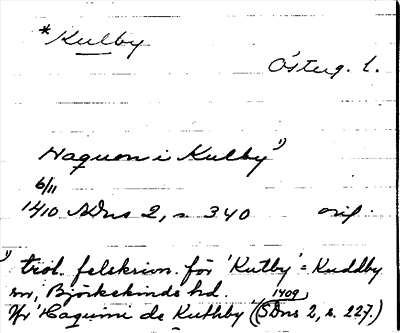 *Kulby
Östug. l.
Haquon i Kulby¹⁾
6/11
1410 SDns 2, s 340 orig.
¹⁾ trol. felskrivn. för 'Kutby' = Kuddby
sn, Björkekinds hd.
Jfr 'Haquini de Kuthby 1409 (SDns 2, s. 227.)